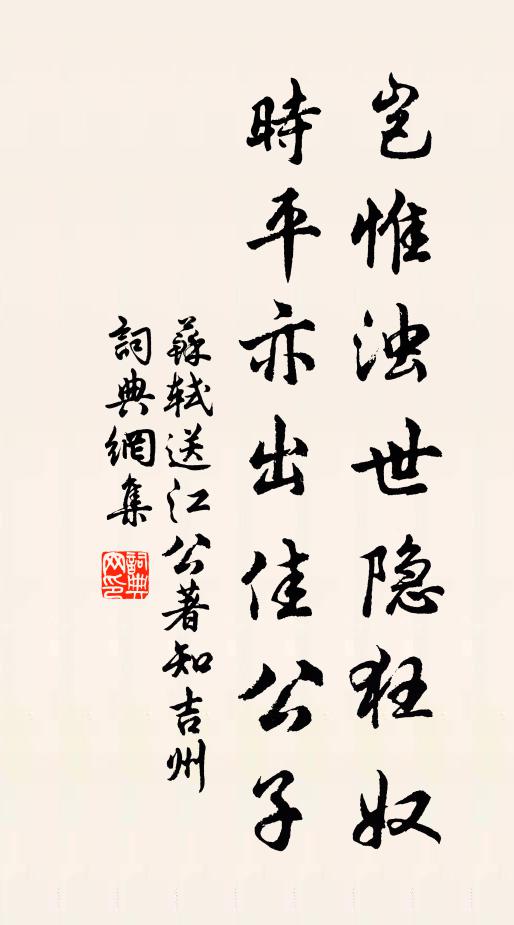 岂惟浊世隐狂奴
時平亦出佳公子
蘇軾送江公著知吉州
詞典網集
詞典网印